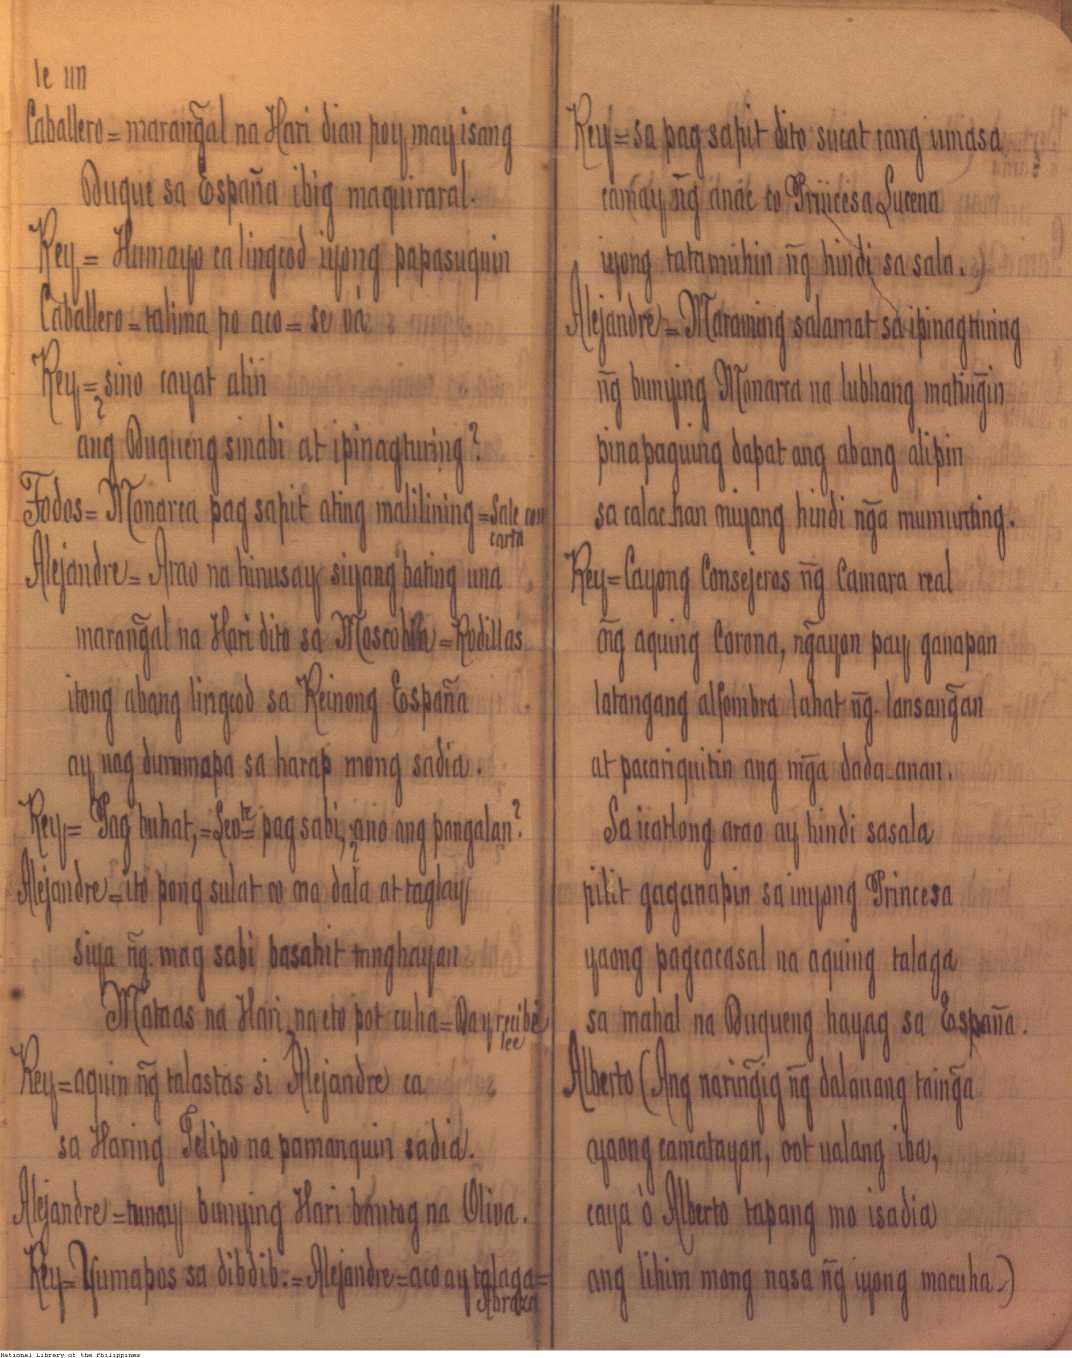 le un
Caballero = maran̄gal na Hari dian poy may isang
Duque sa España ibig maquiraral.
Rey = Humayo ca lingcod iyong papasuquin
Caballero = talima po aco = se vá
Rey = ¿sino cayat alin
ang Duqueng sinabi at ipinagturing?
Todos = Monarca pag sapit ating malilining = Sale con
carta
Alejandre = Arao na hinusay siyang bating una
maran̄gal na Hari dito sa Moscobia = Rodillas
itong abang lingcod sa Reinong España
ay nag dumapa sa harap mong sadia.
Rey = Pag buhat, = Levte pag sabi, ¿ano ang pangalan?
Alejandre = ito pong sulat co na dala at taglay
siya n̄g mag sabi basahit
Mataas na Hari, na eto pot cuha = Da y recibe
lee
Rey = aquin n̄g talastas si Alejandre ca
sa Haring Felipo na pamanquin sadia.
Alejandre = tunay bunying Hari bantog na Oliva.
Rey = Yumapos sa dibdib. = Alejandre = aco ay talaga =
Abraza
Rey = sa pag sapit dito sucat cang umasa
camay n̄g anác co Princesa Lucena
iyong tatamuhin n̄g hindi sa sala.)
Alejandre = Maraming salamat sa ipinagturing
n̄g bunying Monarca na lubhang matin̄gin
pinapaguing dapat ang abang alipin
sa calac-han niyang hindi n̄ga mumunting.
Rey = Cayong Consejeros n̄g Camara real
n̄g aquing Corona, n̄gayon pay ganapan
latangang alfombra lahat n̄g lansan̄gan
at pacariquitin ang m̄ga dada-anan.
Sa icatlong arao ay hindi sasala
pilit gaganapin sa inyong Princesa
yaong pagcacasal na aquing talaga
sa mahal na Duqueng hayag sa España.
Alberto (Ang narin̄gig n̄g dalauang tain̄ga
yaong camatayan, oot ualang iba,
caya ó Alberto tapang mo isadia
ang lihim mong nasa n̄g iyong macuha.)
National Library of the Philippines